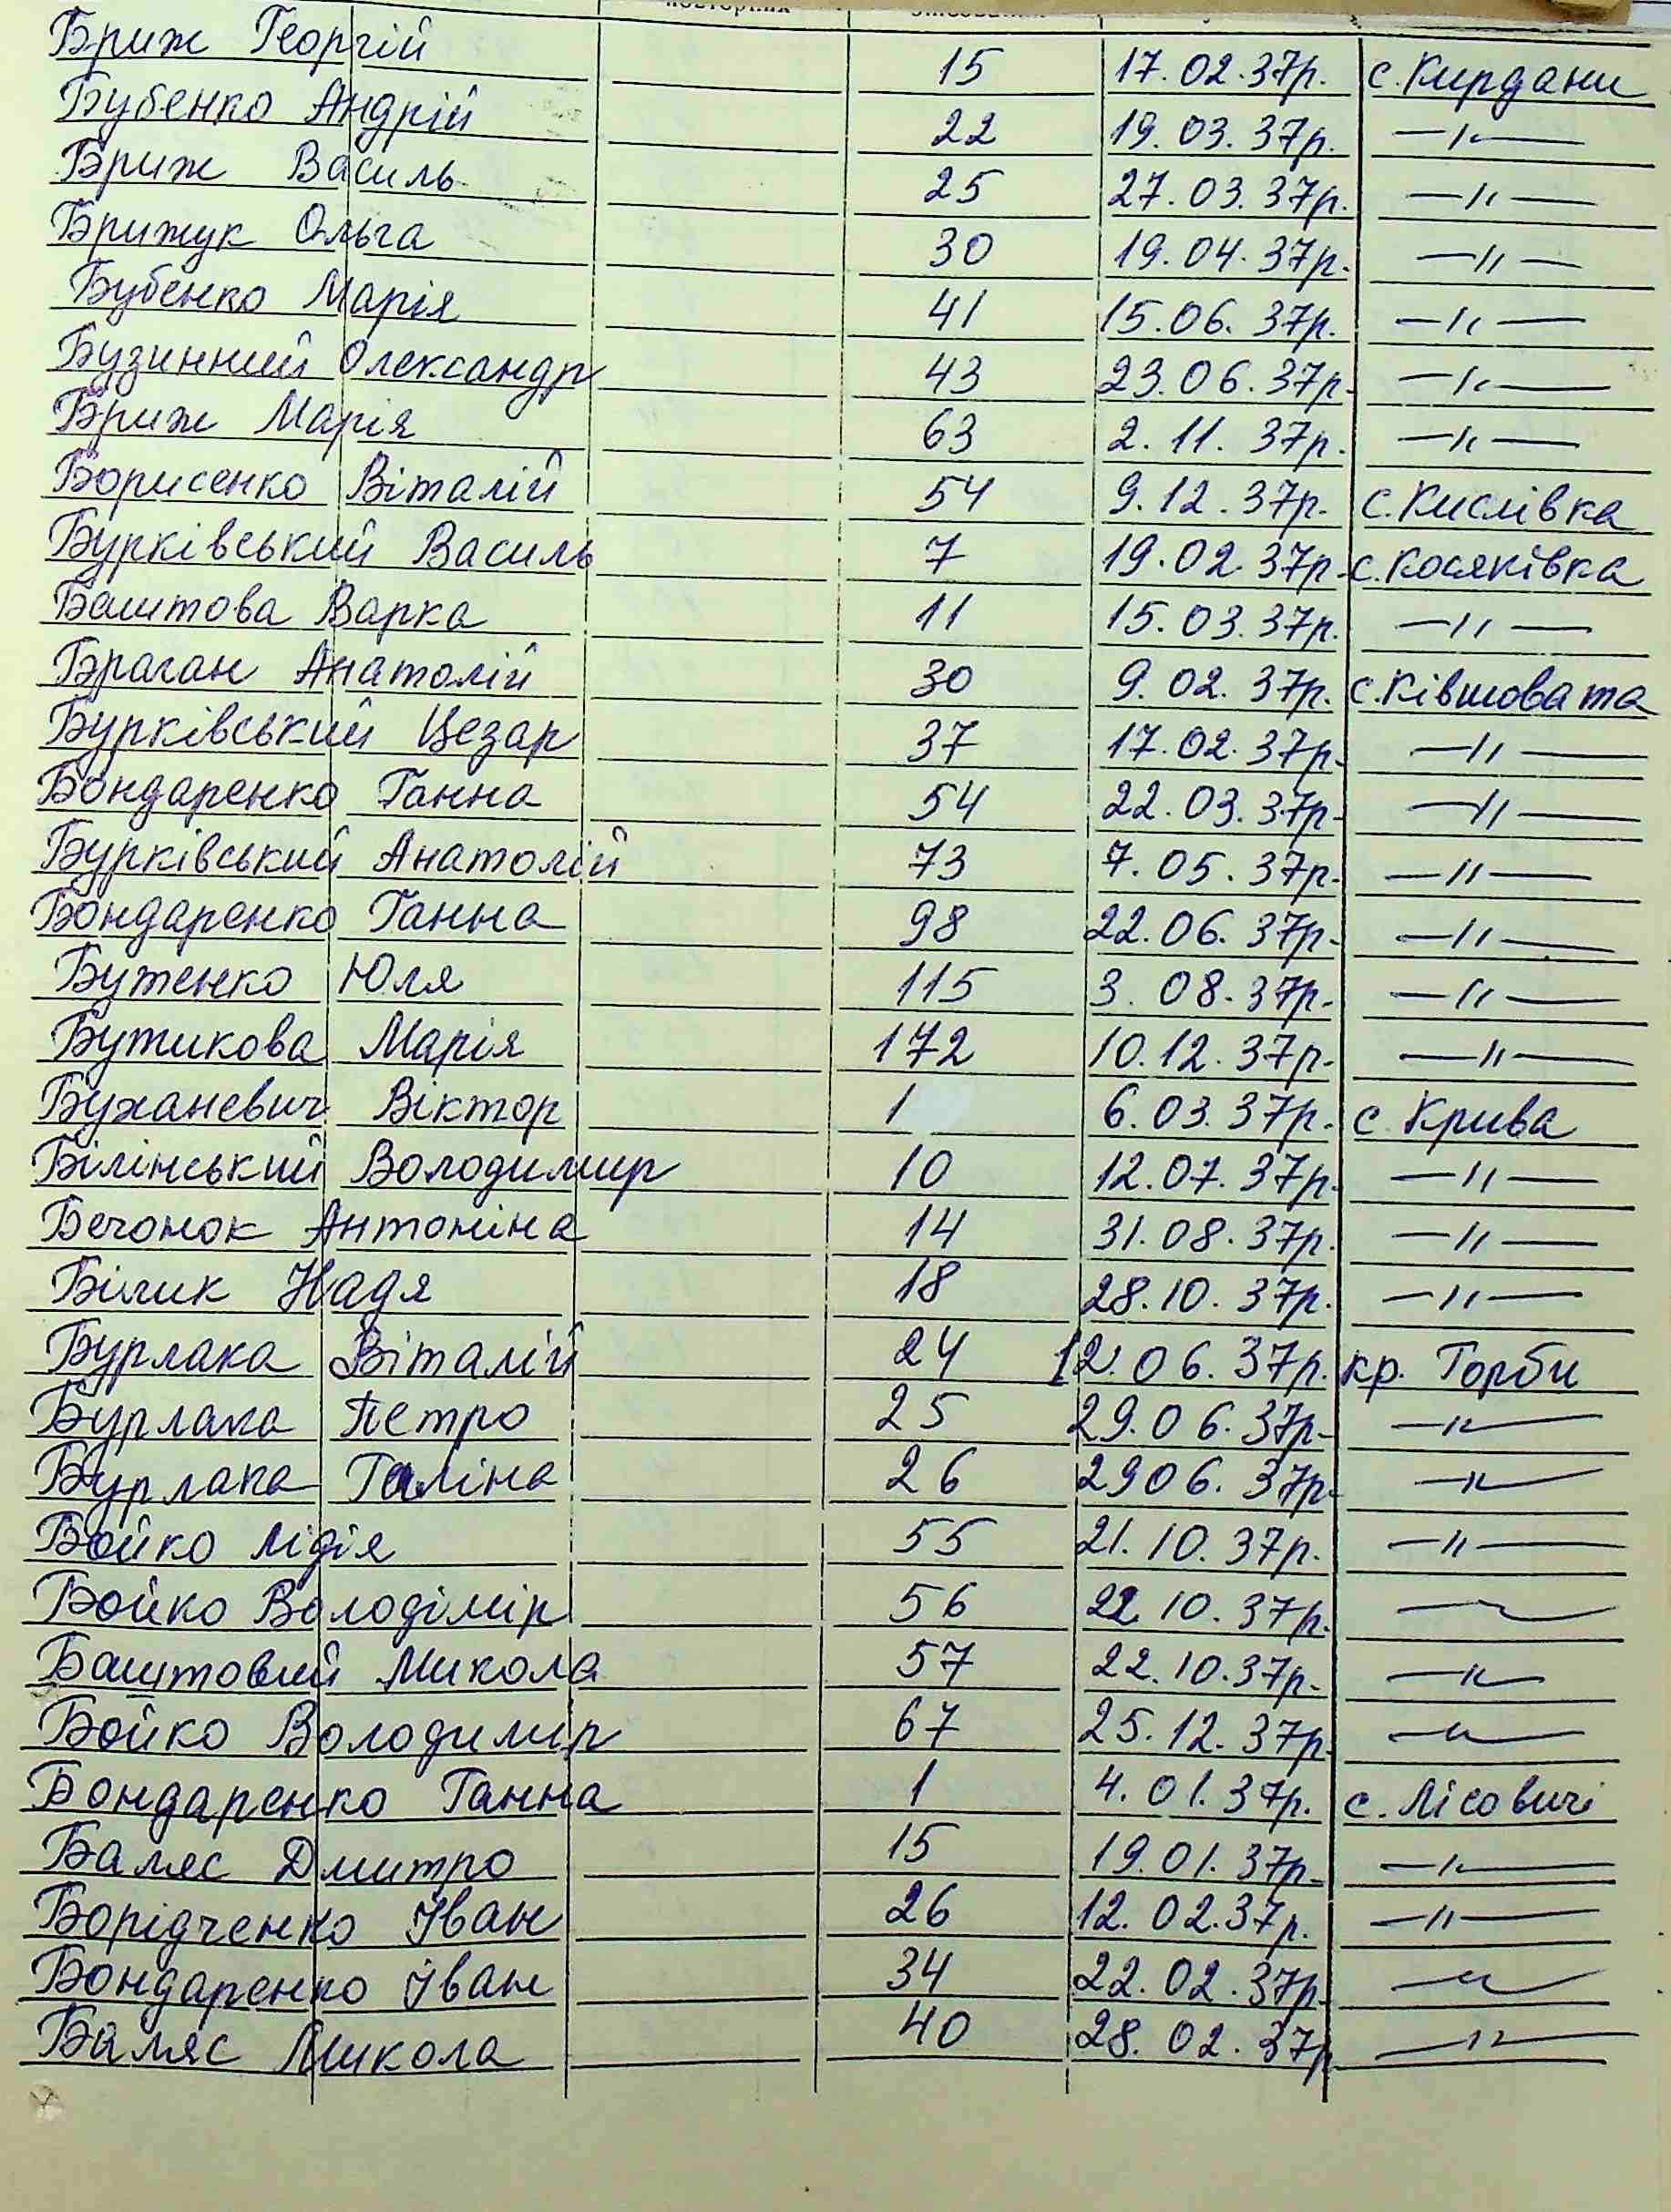 Бриж Георгій 15 17.02.37р. с. Кирдани
Бубенко Андрій 22 19.03.37р. —"—
Бриж Василь 25 27.03.37р. —"—
Брижук Ольга 30 19.04.37р. —"—
Бубенко Марія 41 15.06.37р. —"—
Бузинний Олександр 43 23.06.37р. —"—
Бриж Марія 63 2.11.37р. —"—
Борисенко Віталій 54 9.12.37р. с. Кислівка
Бурківський Василь 7 19.02.37р. с. Косяківка
Баштова Варка 11 15.03.37р. —"—
Браган Анатолій 30 9.02.37р. с. Ківшовата
Бурківський Цезар 37 17.02.37р. —"—
Бондаренко Ганна 54 22.03.37р. —"—
Бурківський Анатолій 73 7.05.37р. —"—
Бондаренко Ганна 98 22.06.37р. —"—
Бутенко Юля 115 3.08.37р. —"—
Бутикова Марія 172 10.12.37р. —"—
Буханевич Віктор 1 6.03.37р. с Крива
Білінський Володимир 10 12.07.37р. —"—
Бечонок Антоніна 14 31.08.37р. —"—
Білик Надя 18 28.10.37р. —"—
Бурлака Віталій 24 12.06.37р. кр. Горби
Бурлака Петро 25 29.06.37р. —"—
Бурлака Галіна 26 2906.37р. —"—
Бойко Лідія 55 21.10.37р. —"—
Бойко Володімір 56 22 10.37р. —"—
Баштовий Микола 57 22.10.37р. —"—
Бойко Володимір 67 25.12.37р. —"—
Бондаренко Ганна 1 4.01.37р. с. Лісовичі
Баляс Дмитро 15 19.01.37р. —"—
Борідченко Іван 26 12.02.37р. —"—
Бондаренко Іван 34 22.02.37р. —"—
Баляс Микола 40 28.02.37р —"—